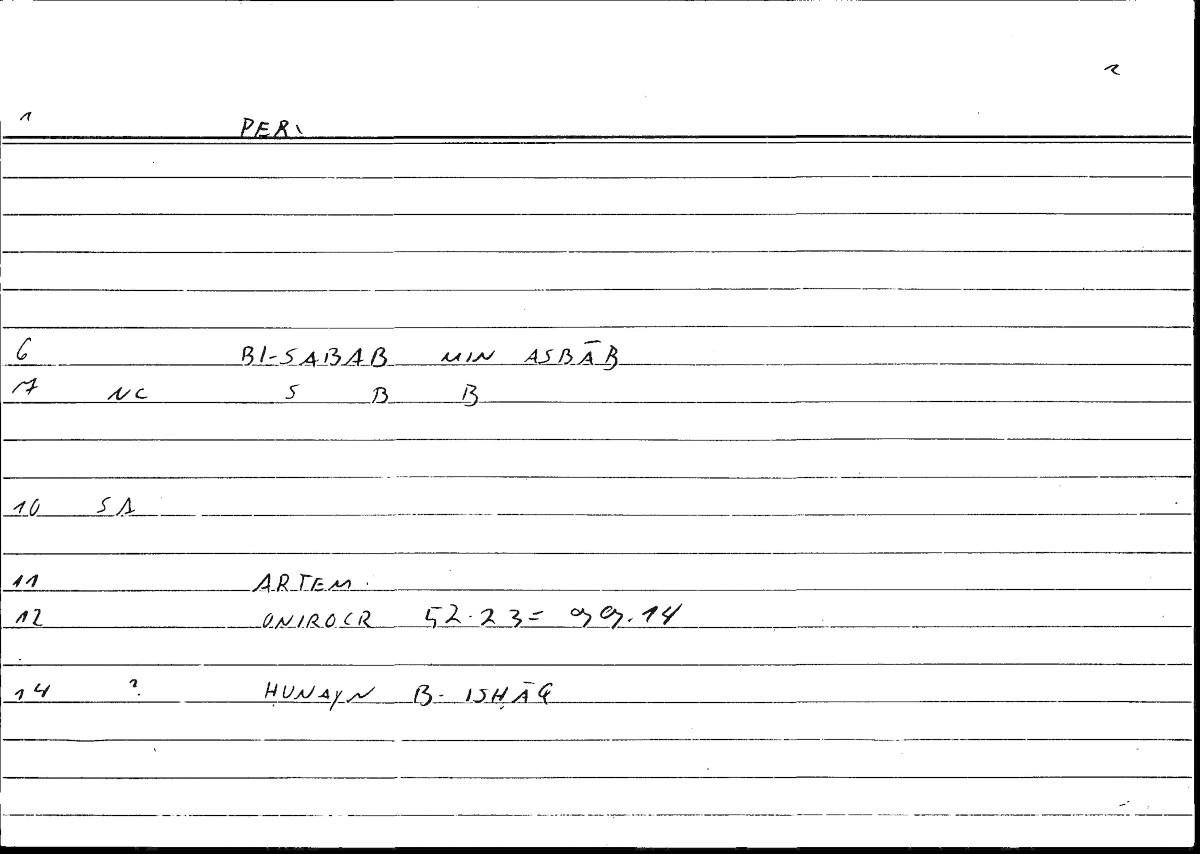 2
1 PERI
6 BI-SABAB MIN ASBĀB
7 NC S B B
10 SA
11 ARTEM.
12 ONIROCR 52.23= 99.14
14 ? ḤUNAYN B- ISḤĀQ